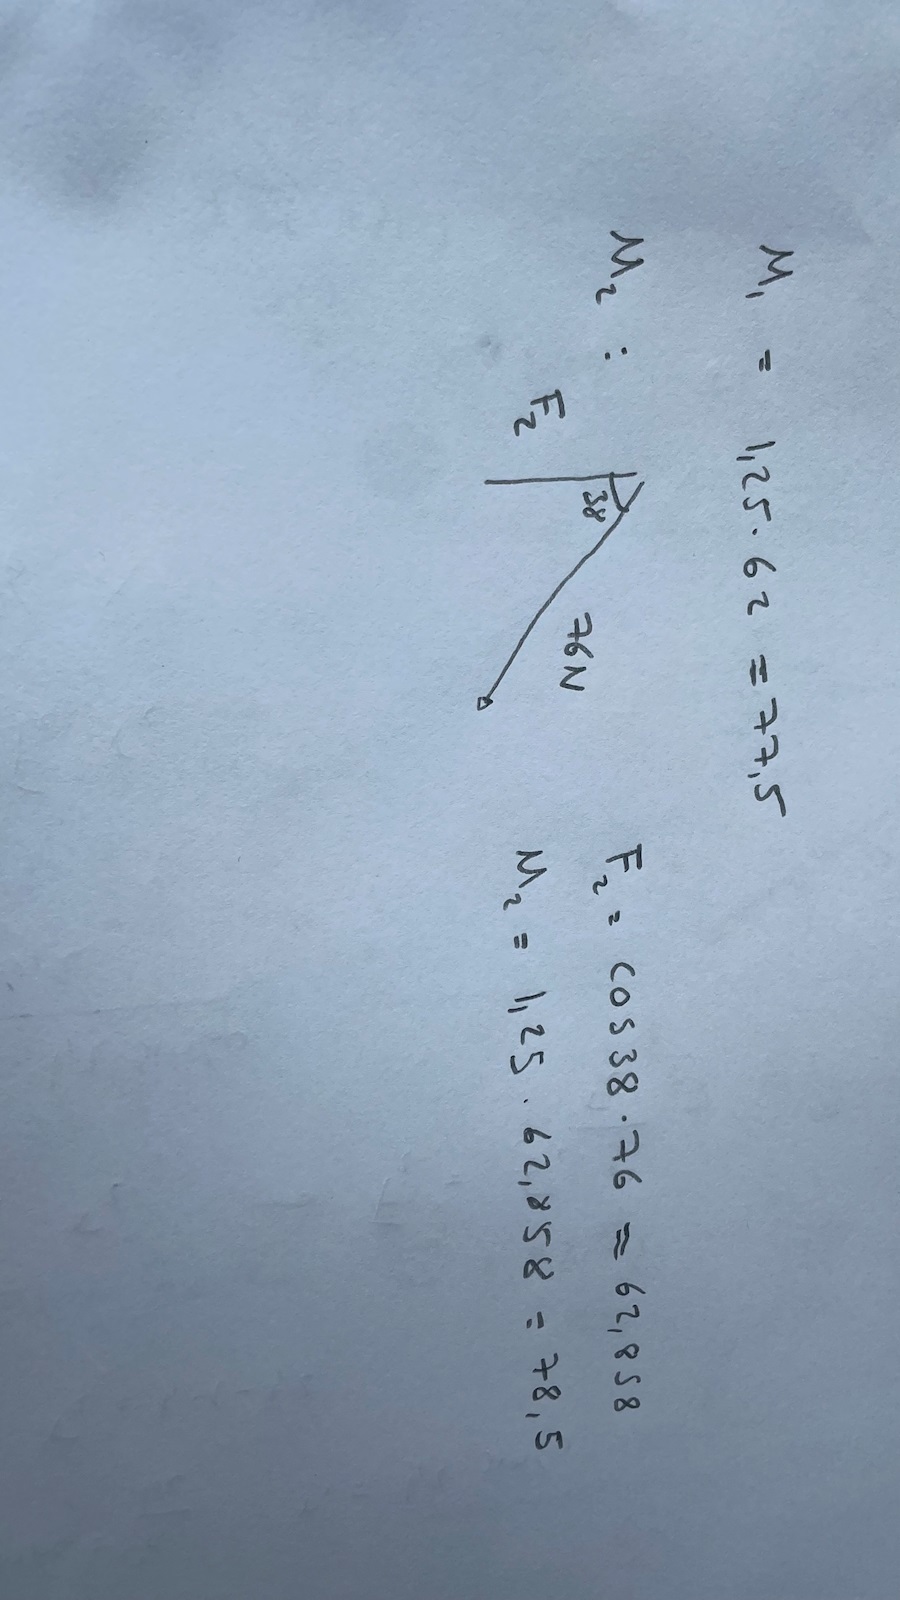 M₁ = 1,25 · 62 = 77,5
M₂ :
F₂
38
76N
F₂ = cos38 · 76 = 62,858
M₂ = 1,25 · 62,858 = 78,5